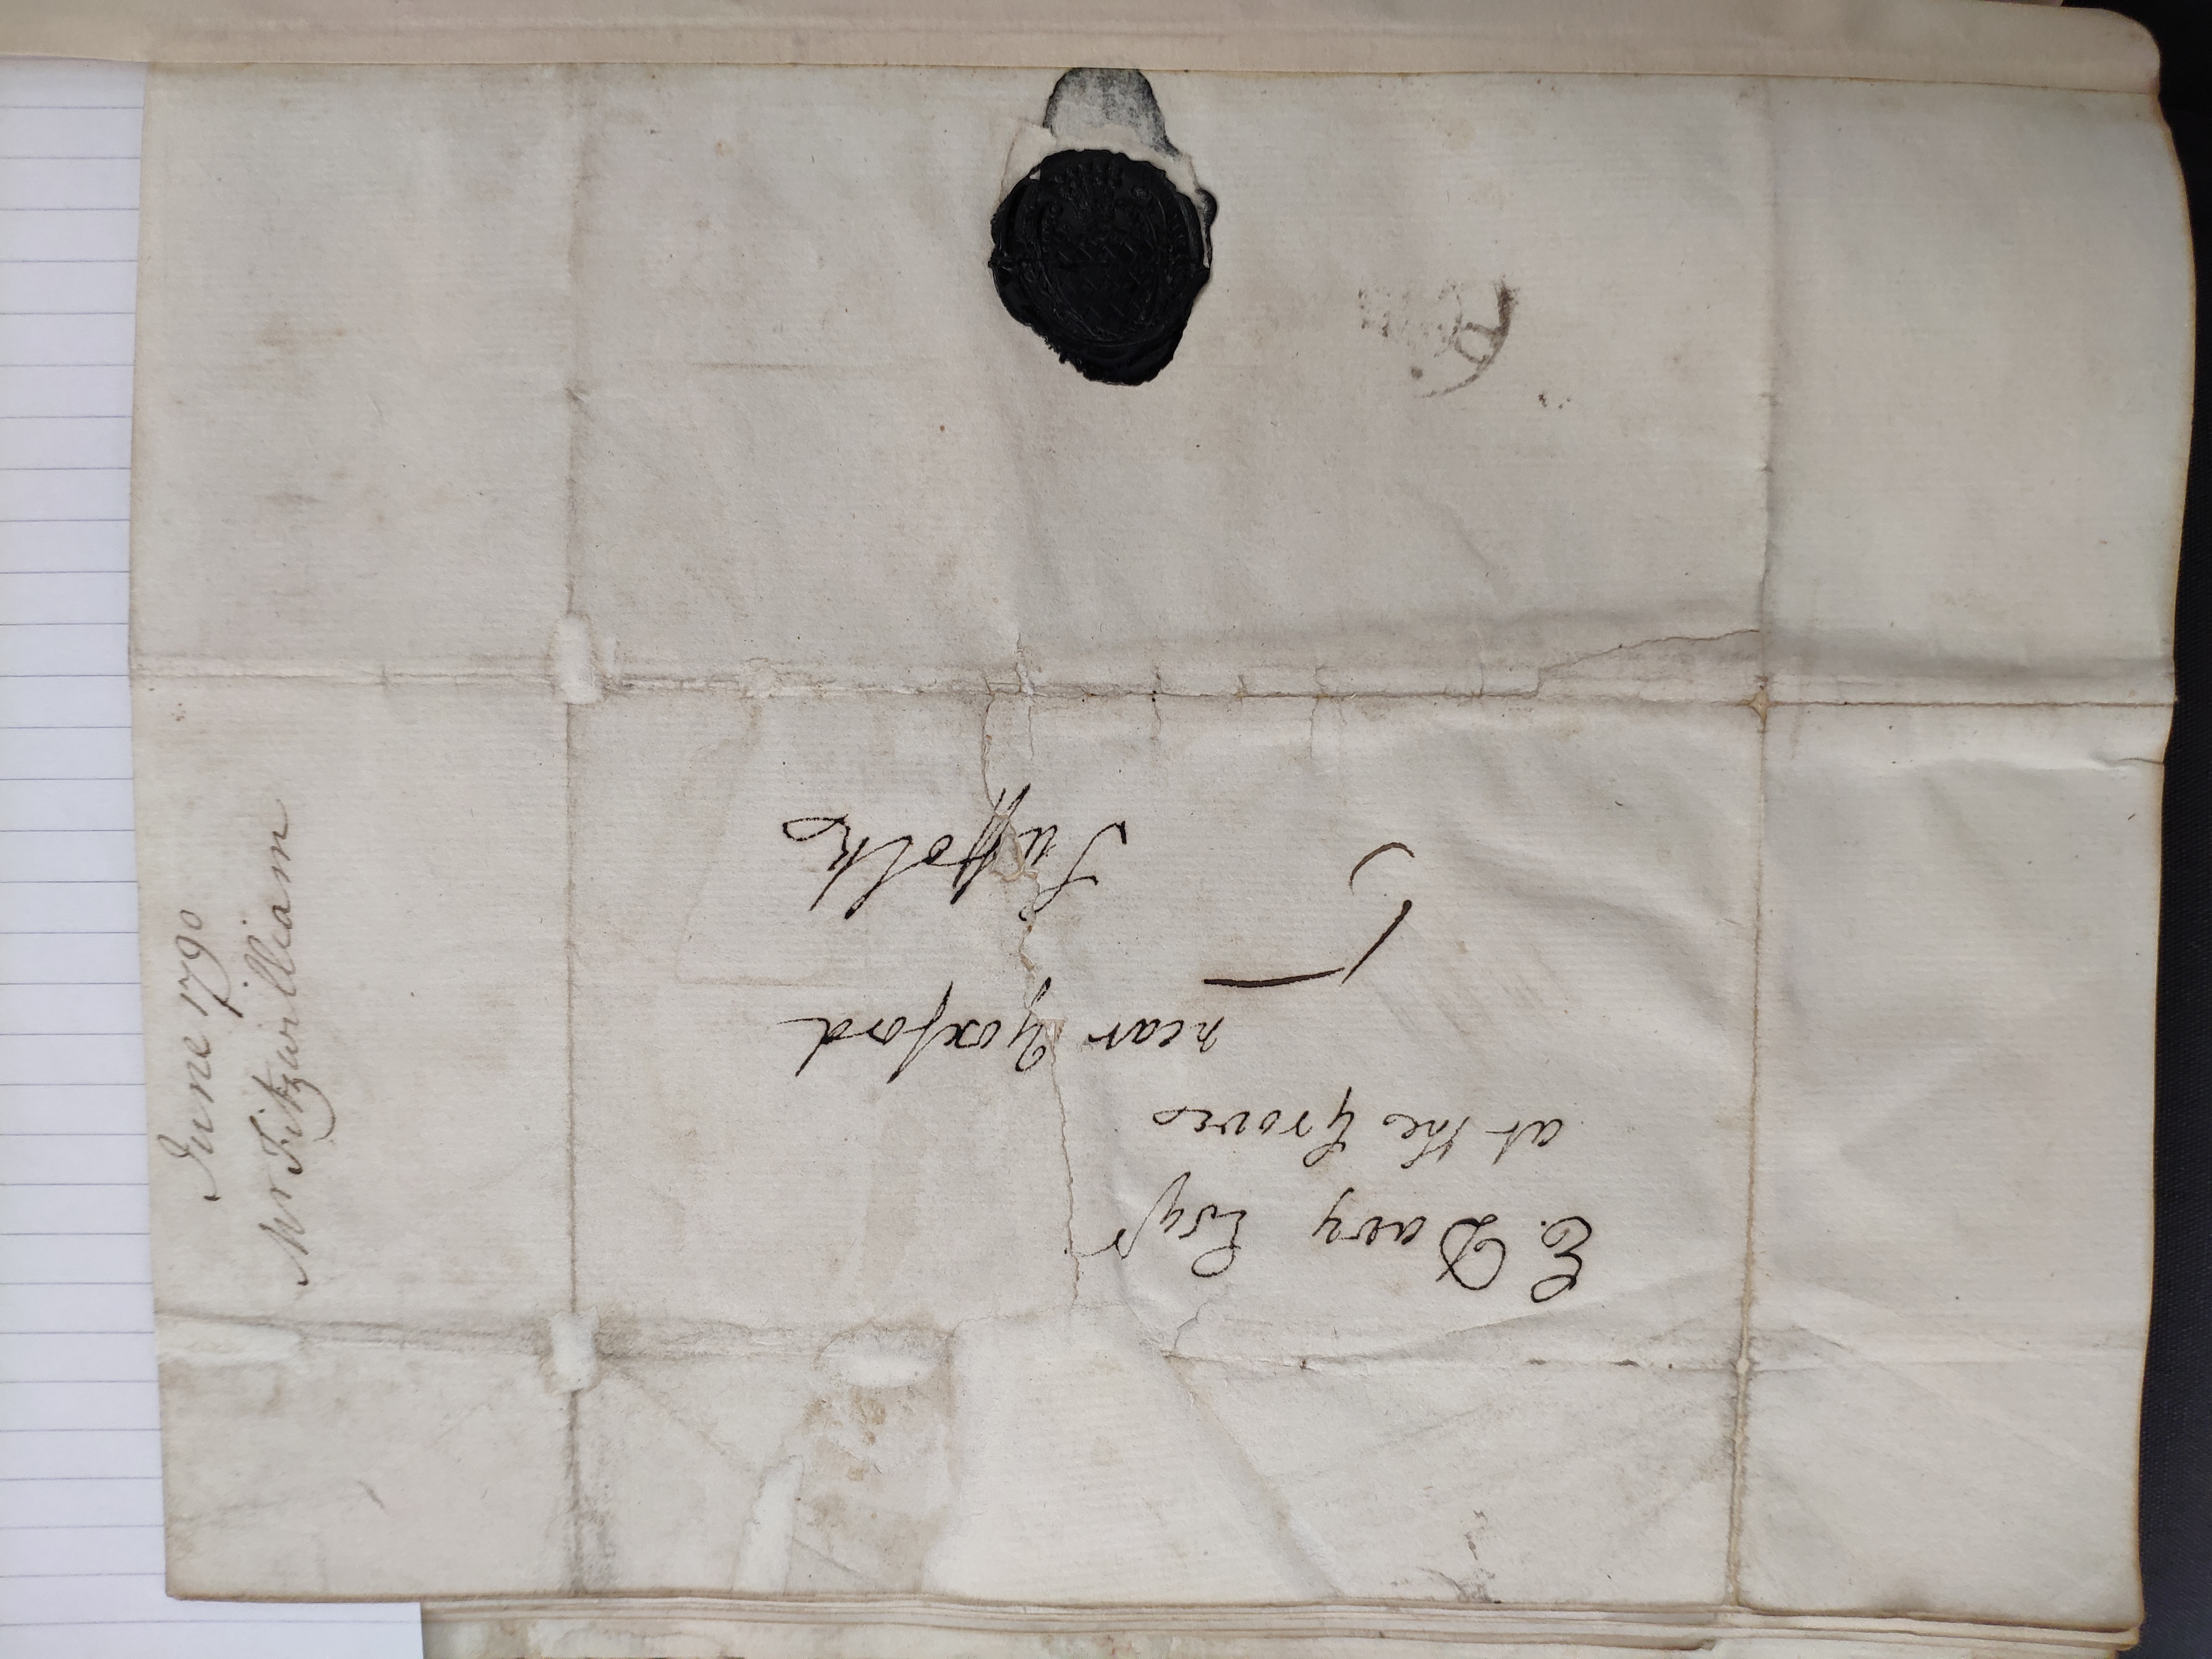 E. Davy Esqr
at the Grove
near Yoxford
Suffolk
5
June 1790
Mr Fitzwilliam